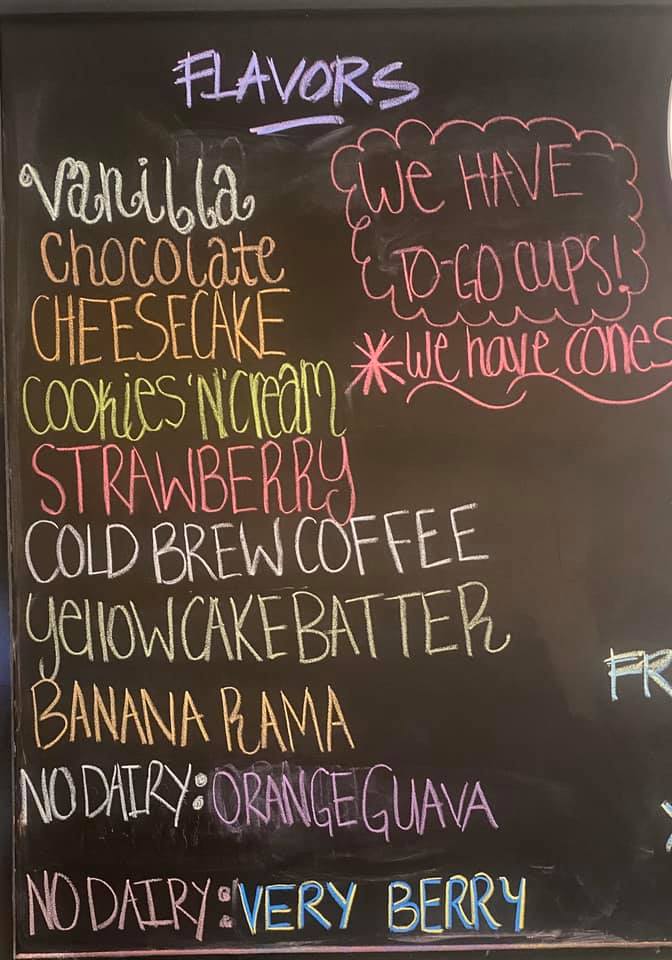 FLAVORS
Vanilla
Chocolate
CHEESECAKE
COOKIES 'N' Cream
STRAWBERRY
COLD BREW COFFEE
Yellow CAKE BATTER
BANANA RAMA
NO DAIRY: ORANGE GUAVA
NO DAIRY: VERY BERRY
We HAVE
TO-GO CUPS!
*We have cones
FR